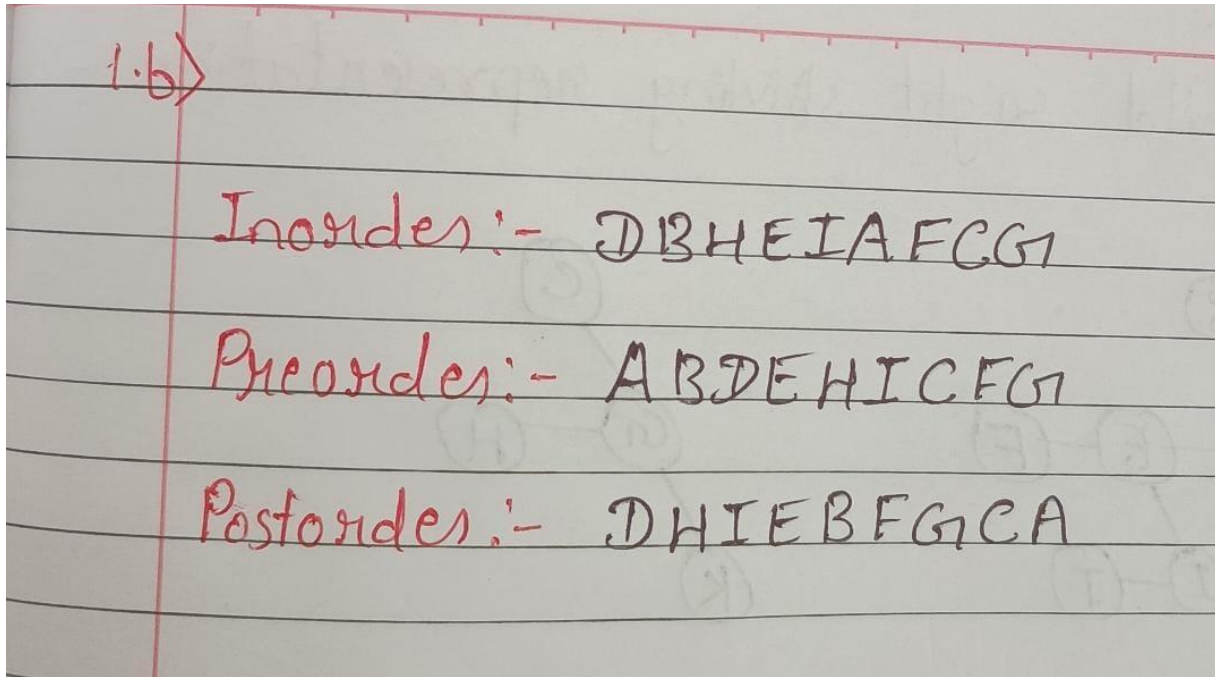 1.b)
Inorder:- DBHEIAFCG
Preorder:- ABDEHICFG
Postorder:- DHIEBFGCA